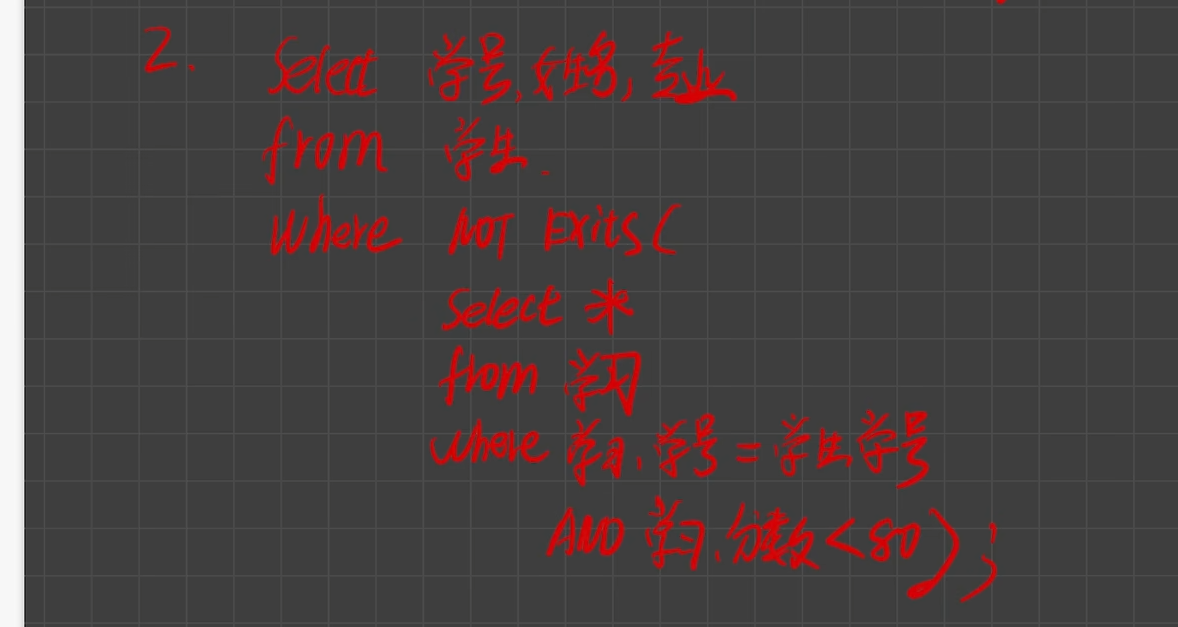 2. Select 学号,姓名,专业
from 学生.
where NOT Exits(
Select *
from 学习
where 学习.学号=学生.学号
AND 学习.分数<80);